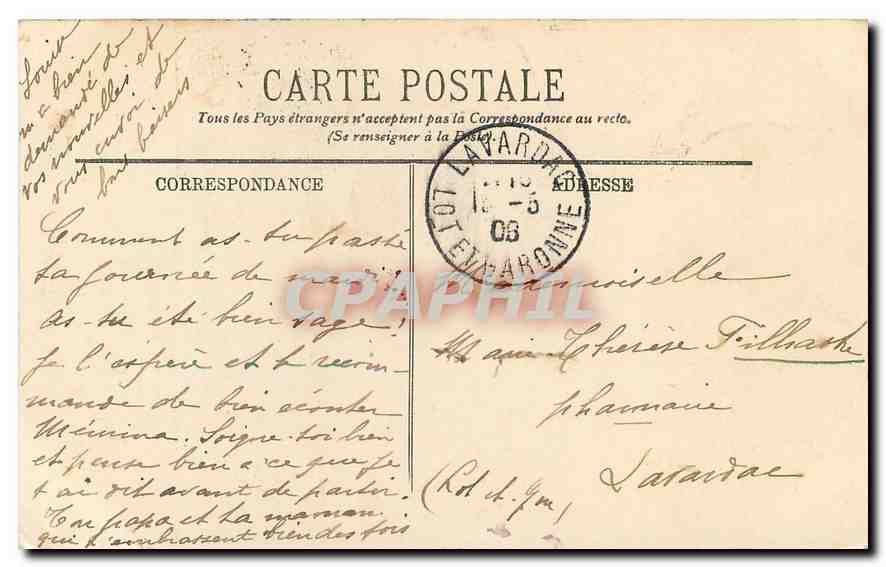 Louise
m'a bien
demandé de
vos nouvelles et
vous envoi de
bons baisers
CARTE POSTALE
Tous les Pays étrangers n'acceptent pas la Correspondance au recto.
(Se renseigner à la Poste).
CORRESPONDANCE
ADRESSE
LAVARDAC
LOT ET GARONNE
-5
06
Comment as-tu passé
ta journée de mardi ?
as-tu été bien sage ?
je l'espère et te recom-
mande de bien écouter
Mémina. Soigne-toi bien
et pense bien a ce que je
t'ai dit avant de partir.
Ton papa et ta maman
qui t'embrassent bien des fois
Mademoiselle
Marie Thérèse Filhastre
pharmacie
Lavardac
(Lot et Gne)
CPAPHIL